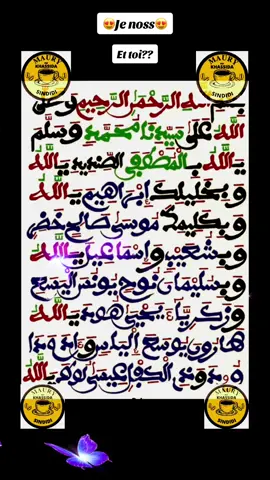 😍Je noss😍
Et toi??
MAURY
KHASSIDA
SINDIDI
MAURY
KHASSIDA
SINDIDI
بسم الله الرحمن الرحيم وصلى
الله على سيدنا محمد وسلم
يا الله بالمصطفى الصديد يا الله
وبخليلك إبراهيم يا الله
وبكليمك موسى صالح خضر
وبشعيب وإسماعيل يا الله
وبسليمان نوح يونس اليسع
وزكرياء يحيى هود يا الله
هارون يوشع إلياس
الكفل عيسى لوط يا الله
MAURY
KHASSIDA
SINDIDI
MAURY
KHASSIDA
SINDIDI